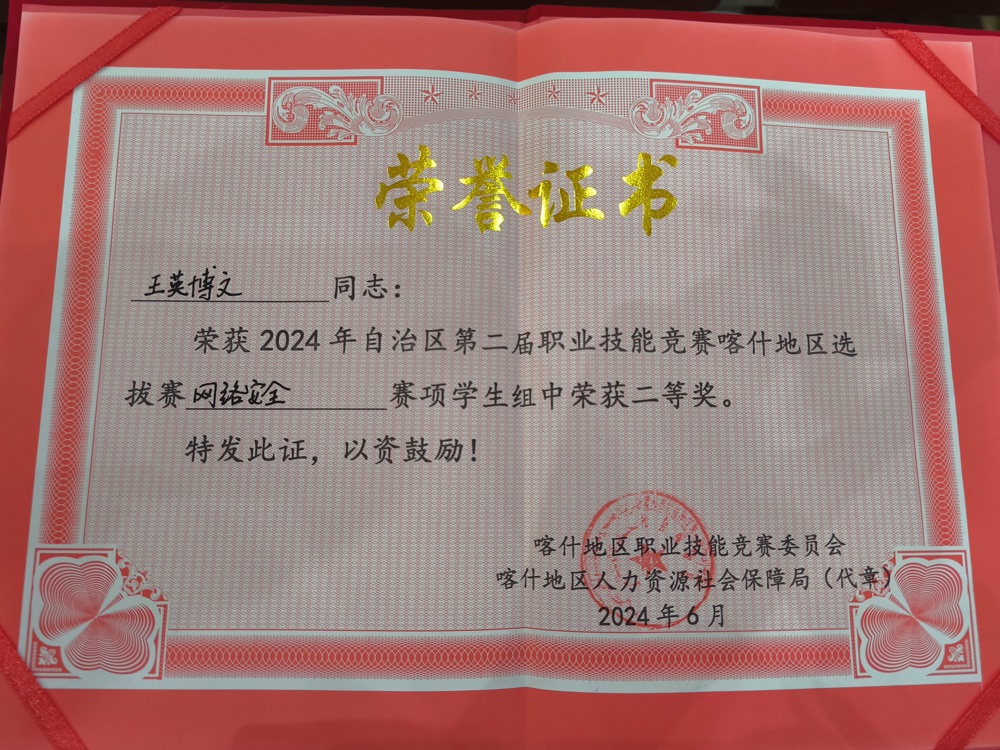 荣誉证书
王英博文 同志：
荣获 2024 年自治区第二届职业技能竞赛喀什地区选
拔赛 网络安全 赛项学生组中荣获二等奖。
特发此证，以资鼓励！
喀什地区职业技能竞赛委员会
喀什地区人力资源社会保障局（代章）
2024 年 6 月